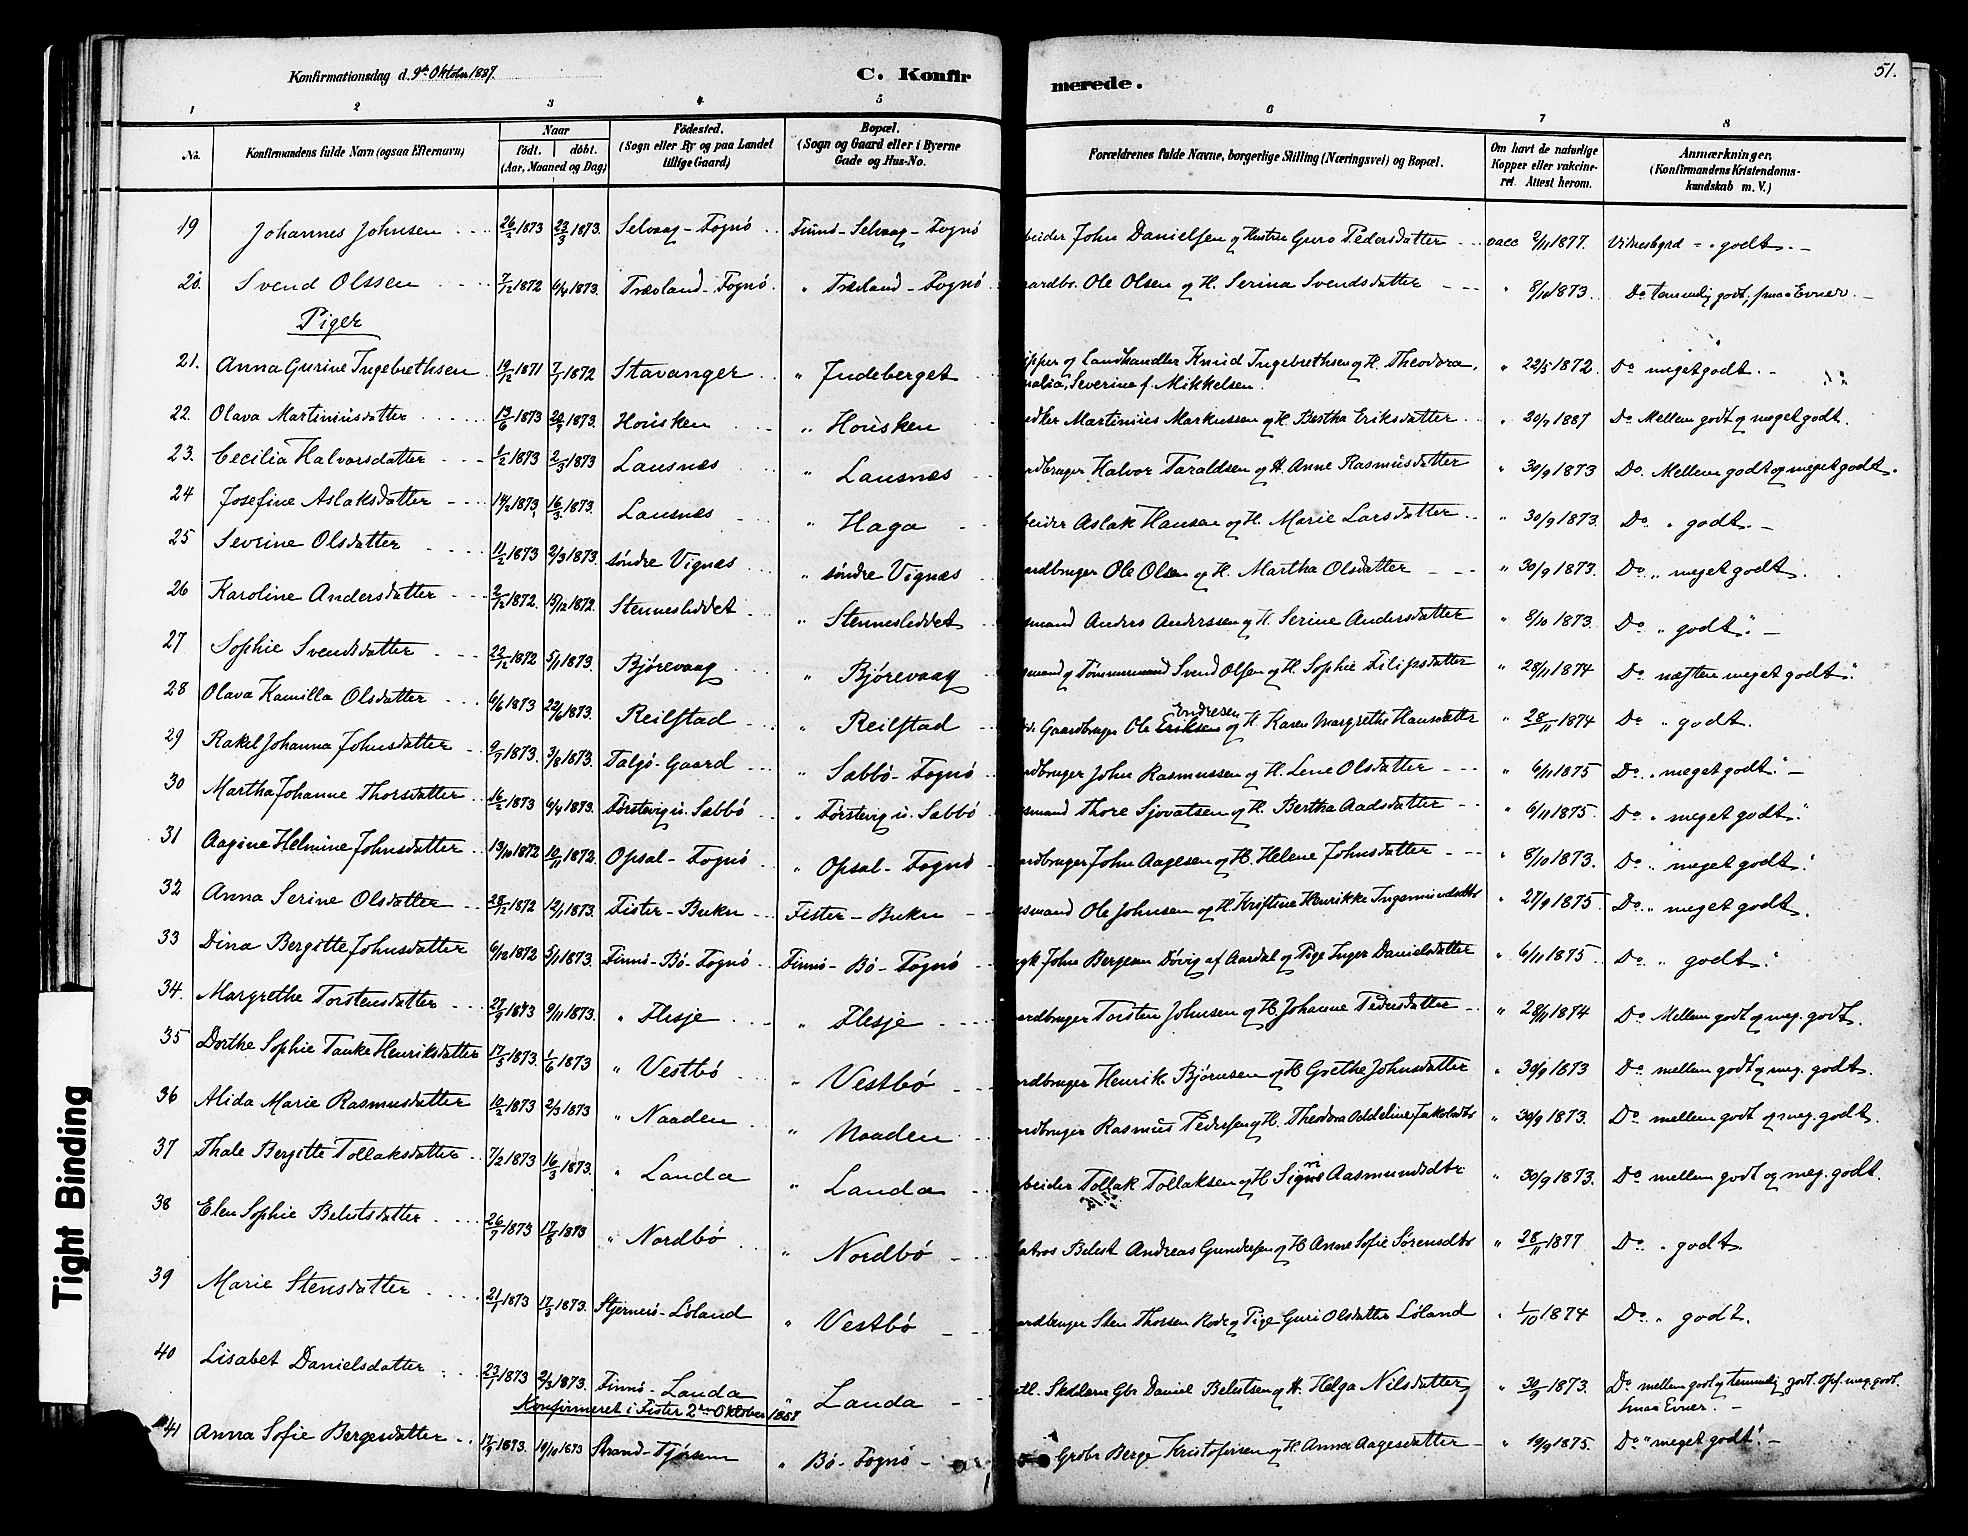 Konfirmationsdag d. 9de Oktober 1887.
C. Konfir
merede.
51.
1 2 3 4 5 6 7 8
No. Konfirmandens fulde Navn (ogsaa Efternavn) Naar født. døbt. (Aar, Maaned og Dag) Fødested. (Sogn eller By og paa Landet tillige Gaard) Bopæl. (Sogn og Gaard eller i Byerne Gade og Hus-No. Forældrenes fulde Navne, borgerlige Stilling (Næringsvei) og Bopæl. Om havt de naturlige Kopper eller vakcineret. Attest herom. Anmærkninger. (Konfirmandens Kristendomskundskab m. V.)
19 Johannes Johnsen 26/2 1873 23/3 1873. Selvaag - Fognø Finnø - Selvaag - Fognø beider John Danielsen og Hustru Guro Pedersdatter vacc 2/11 1877. Vidnesbyrd godt.
20. Svend Olssen 7/12 1872 6/4 1873. Trævland - Fognø " Trævland - Fognø aardbr. Ole Olsen og H. Serina Svendsdatter " 8/10 1873. Do temmelig godt, smaa Evner.
Piger
21. Anna Gurine Ingebrethsen 19/12 1871 7/7 1872 Stavanger " Judeberget ipper og Landhandler Knud Ingebrethsen og H. Theodora,
malia, Severine f. Mikkelsen. " 22/5 1872. Do meget godt.
22. Olava Martiniusdatter 13/6 1873 20/7 1873. Housken " Housken edker Martinius Markussen og H. Bertha Eriksdatter " 20/9 1887 Do Mellem godt og meget godt.
23. Cecilia Halvorsdatter 1/2 1873 2/3 1873 Lausnæs " Lausnæs ardbruger Halvor Taraldsen og H. Anne Rasmusdatter " 30/9 1873 Do. Mellem godt og meget godt.
24 Josefine Aslaksdatter 14/2 1873, 16/3 1873. Lausnæs " Haga beider Aslak Hansen og H. Marie Larsdatter " 30/9 1873 Do " godt.
25 Sevrine Olsdatter 11/2 1873 2/3 1873. søndre Vignæs " søndre Vignæs ardbruger Ole Olsen og H. Martha Olsdatter " 30/9 1873. Do " meget godt.
26 Karoline Andersdatter 2/12 1872. 15/12 1872. Stennesleddet " Stennesleddet smand Anders Anderssen og H. Serine Andersdatter " 8/10 1873. Do " godt".
27 Sophie Svendsdatter 22/12 1872 5/1 1873. Bjørevaag " Bjørevaag smand og Tømmermand Svend Olsen og H. Sophie Filipsdatter " 28/11 1874 Do næsten meget godt".
28 Olava Kamilla Olsdatter 6/6 1873 22/6 1873. Reilstad " Reilstad Gaardbruger Ole Eriksen Endresen og H. Karen Margrethe Hansdattr " 28/11 1874 Do " godt.
29 Rakel Johanna Johnsdatter 9/7 1873. 3/8 1873. Talgø - Gaard " Sæbbø - Fognø rdbruger John Rasmussen og H. Lene Olsdatter " 6/11 1875 Do. " meget godt."
30 Martha Johanne Thorsdatter 16/2 1873 6/4 1873. Førstevig u. Sæbbø " Førstevig u. Sæbbø smand Thore Sjovatsen og H. Bertha Aadsdatter " 6/11 1875. Do " meget godt."
31 Aagine Helmine Johnsdatter 13/10 1872 10/11 1872. Opsal - Fognø " Opsal - Fognø ardbruger John Aagesen og H. Helene Johnsdatter " 8/10 1873. Do " meget godt."
32 Anna Serine Olsdatter 28/12 1872 12/1 1873. Fister - Bukn Fister - Bukn smand Ole Johnsen og H. Kristine Henrikke Ingemundsdtr " 27/9 1875. Do. " meget godt.
33 Dina Bergitte Johnsdatter 6/12 1872 5/1 1873. Finnø - Bø - Fognø Finnø - Bø - Fognø gk John Bergesen Døvig af Aardal og Pige Inger Danielsdatter " 6/11 1875. Do " godt."
34. Margrethe Torstensdatter 27/9 1873 9/11 1873. " Flesje " Flesje ardbruger Torsten Johnsen og H. Johanne Pedersdatter " 28/11 1874 Do Mellem godt og meg. godt.
35 Dorthe Sophie Tanke Henriksdatter 17/5 1873. 1/6 1873 " Vestbø " Vestbø ardbruger Henrik Bjørnsen og H. Goethe Johnsdatter " 30/9 1873 Do mellem godt og meg. godt.
36 Alida Marie Rasmusdatter 10/2 1873 2/3 1873 " Naaden " Naaden ardbruger Rasmus Pedersen og H. Theodora Addeline Jakobsdtr " 30/9 1873. Do mellem godt og meg. godt.
37 Thale Bergitte Tollaksdatter 7/2 1873 16/3 1873. " Landa " Landa rbeider Tollak Tollaksen og H Signe ri Aasmundsdtr " 30/9 1873. Do mellem godt og meg. godt.
38 Elen Sophie Belestsdatter 26/7 1873 17/8 1873 " Nordbø " Nordbø atros Belest Andreas Gundersen og H Anne Sofie Sørensdtr " 28/11 1877 Do. " godt
39 Marie Stensdatter 21/1 1873 17/3 1873. Stjernerø - Løland " Vestbø ardbruger Sten Thorsen Rode og Pige Guri Olsdatter Løland " 1/10 1874 Do. " godt.
40 Lisabet Danielsdatter 23/1 1873 2/3 1873. Finnø - Landa " Landa Skolelærer Gbr Daniel Belestsen og H. Helga Nilsdatter " 30/9 1873. Do mellem godt og temmelig godt. Opf. meg. godt.
Smaa Evner.
Konfirmeret i Fister 2den Oktober 1887
41 Anna Sofie Bergesdatter 17/9 1873. 19/10 1873 Strand - Fjøreem " Bø - Fognø Grdbr Berge Kristofersen og H. Anna Aagesdatter " 19/9 1875. Do " meget godt".
Tight Binding